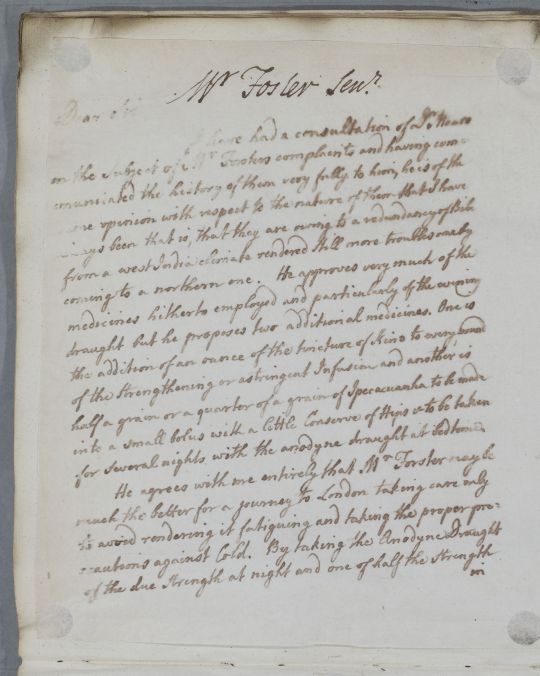 Mr Foster Senr.
Dear Sir
I have had a consultation of a Dr
on the Subject of Mr Forsters complaints and having com=
=municated the history of them very fully to him, he is of the
same opinion with respect to the nature of them that I have
always been that is, that they are owing to a redundancy of Bile
from a west India climate rendered still more troublesome by
coming to a northern one. He approves very much of the
medicines hitherto employed and particularly of the evening
draught but he proposes two additional medicines. One is
the addition of an ounce of the tincture of Kino to every pound
of the Strengthening or astringent Infusion and another is
half a grain or a quarter of a grain of Ipecacuanha to be made
into a small bolus with a little Conserve of Hips & to be taken
for several nights with the anodyne draught at bedtime
He agrees with me entirely that Mr Forster may be
much the better for a journey to London taking care only
to avoid rendering it fatiguing and taking the proper pre=
=cautions against Cold. By taking the Anodyne Draught
of the due Strength at night and one of half the Strength
in